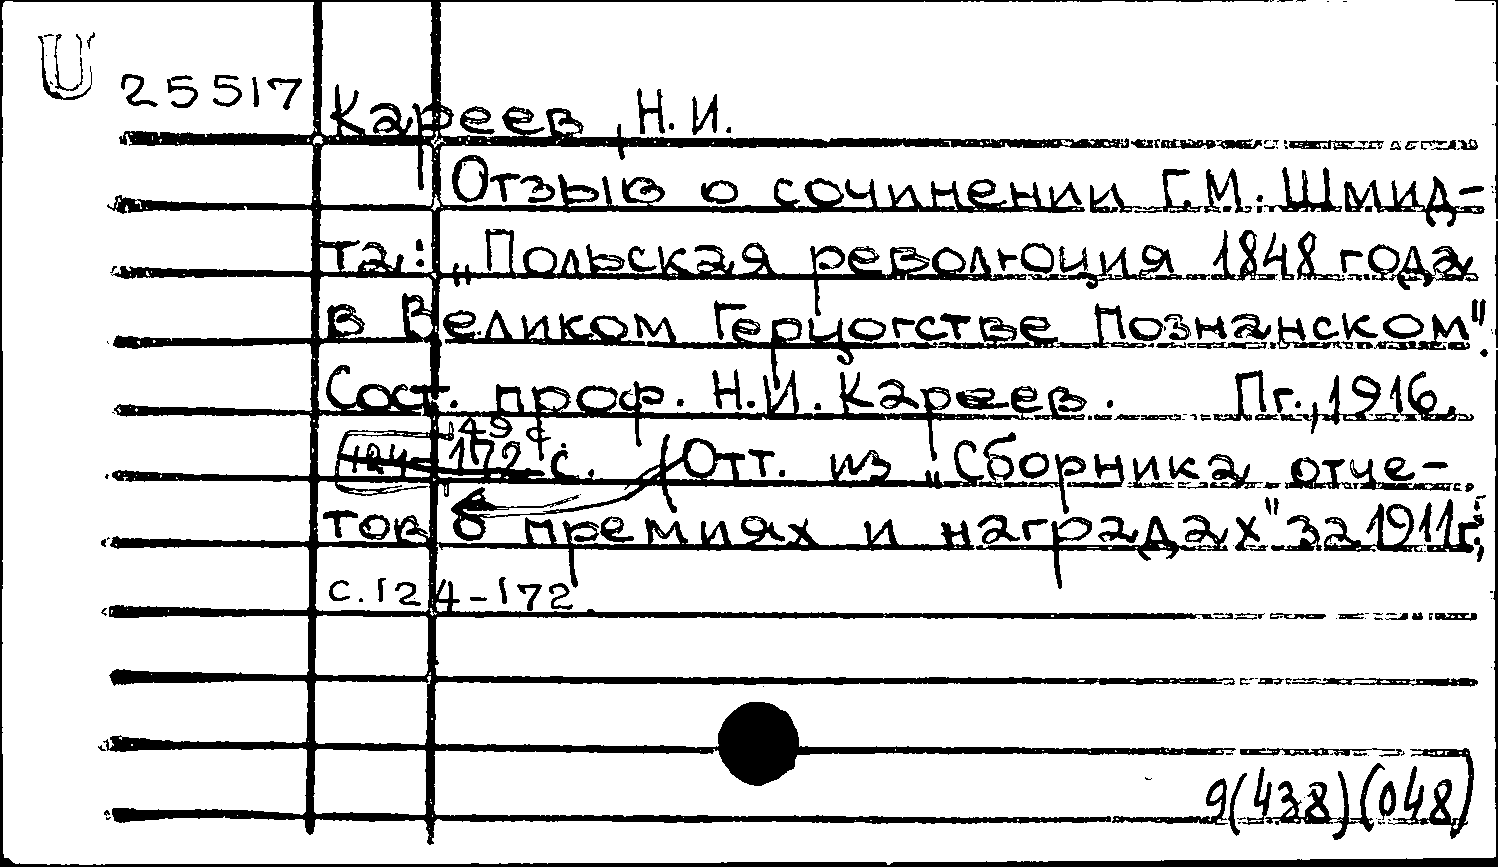 U
25517
Кареев, Н.И.
Отзыв о сочинении Г.М. Шмид-
та: „Польская революция 1848 года
в Великом Герцогстве Познанском".
Сост. проф. Н.И. Кареев. Пг., 1916.
49 с.
124-172 с. (Отт. из „Сборника отче-
тов о премиях и наградах" за 1911г.;
с. 124-172.
9(438)(048)